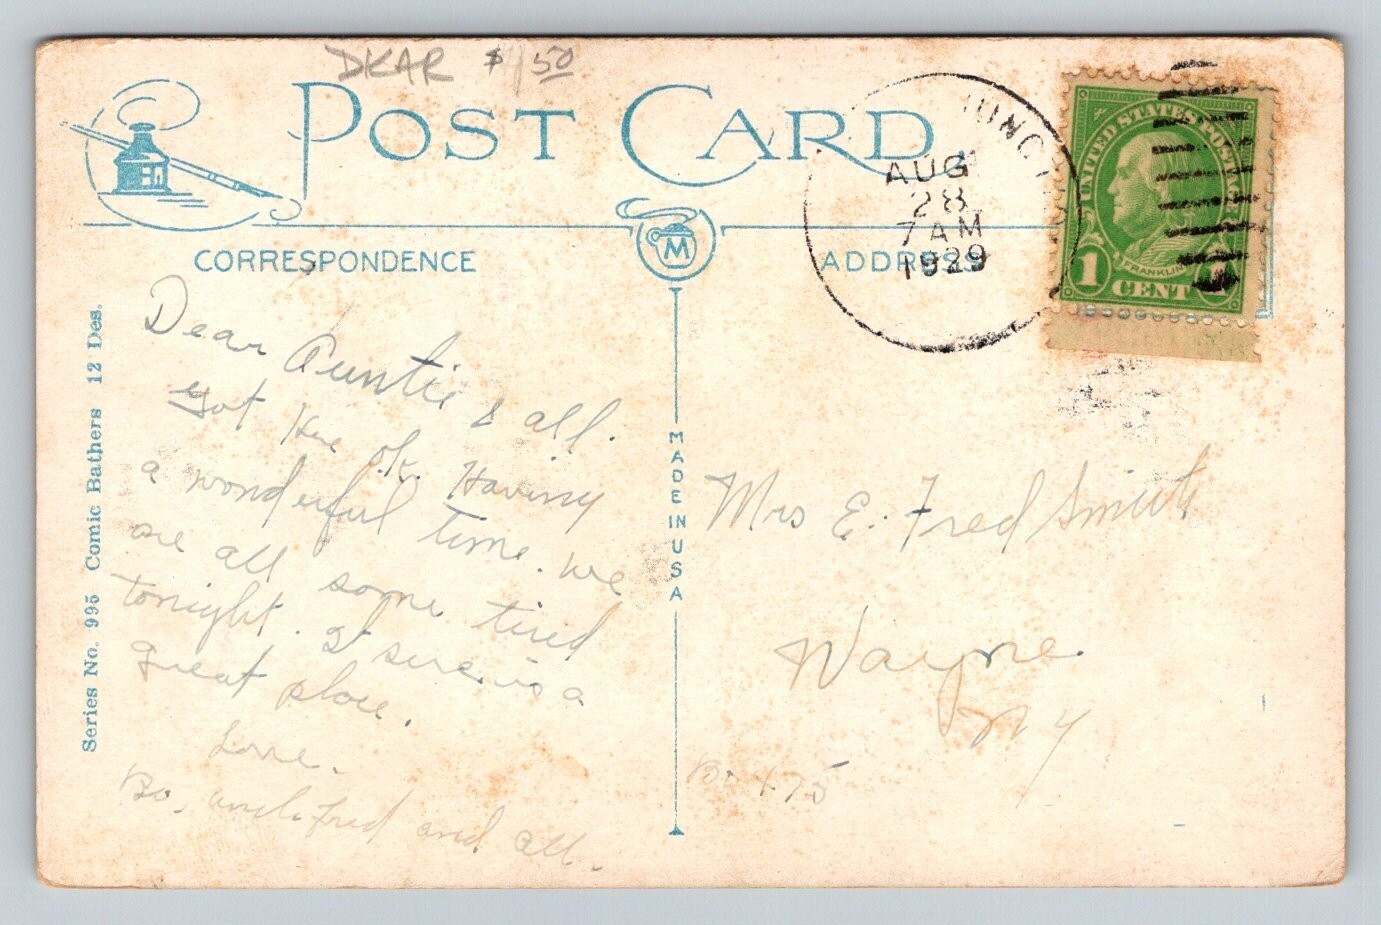 DKAR $1.50
POST CARD.
CORRESPONDENCE
ADDRESS
M
AUG
28
7 AM
1929
UNITED STATES POSTAGE
FRANKLIN
1 CENT 1
Series No. 995 Comic Bathers 12 Des.
MADE IN USA
Dear Auntie & all.
Got here ok. Having
a wonderful time. We
are all some tired
tonight. It sure is a
great place.
Love.
Bo, Uncle Fred and all.
Mrs E. Fred Smith
Wayne
NY